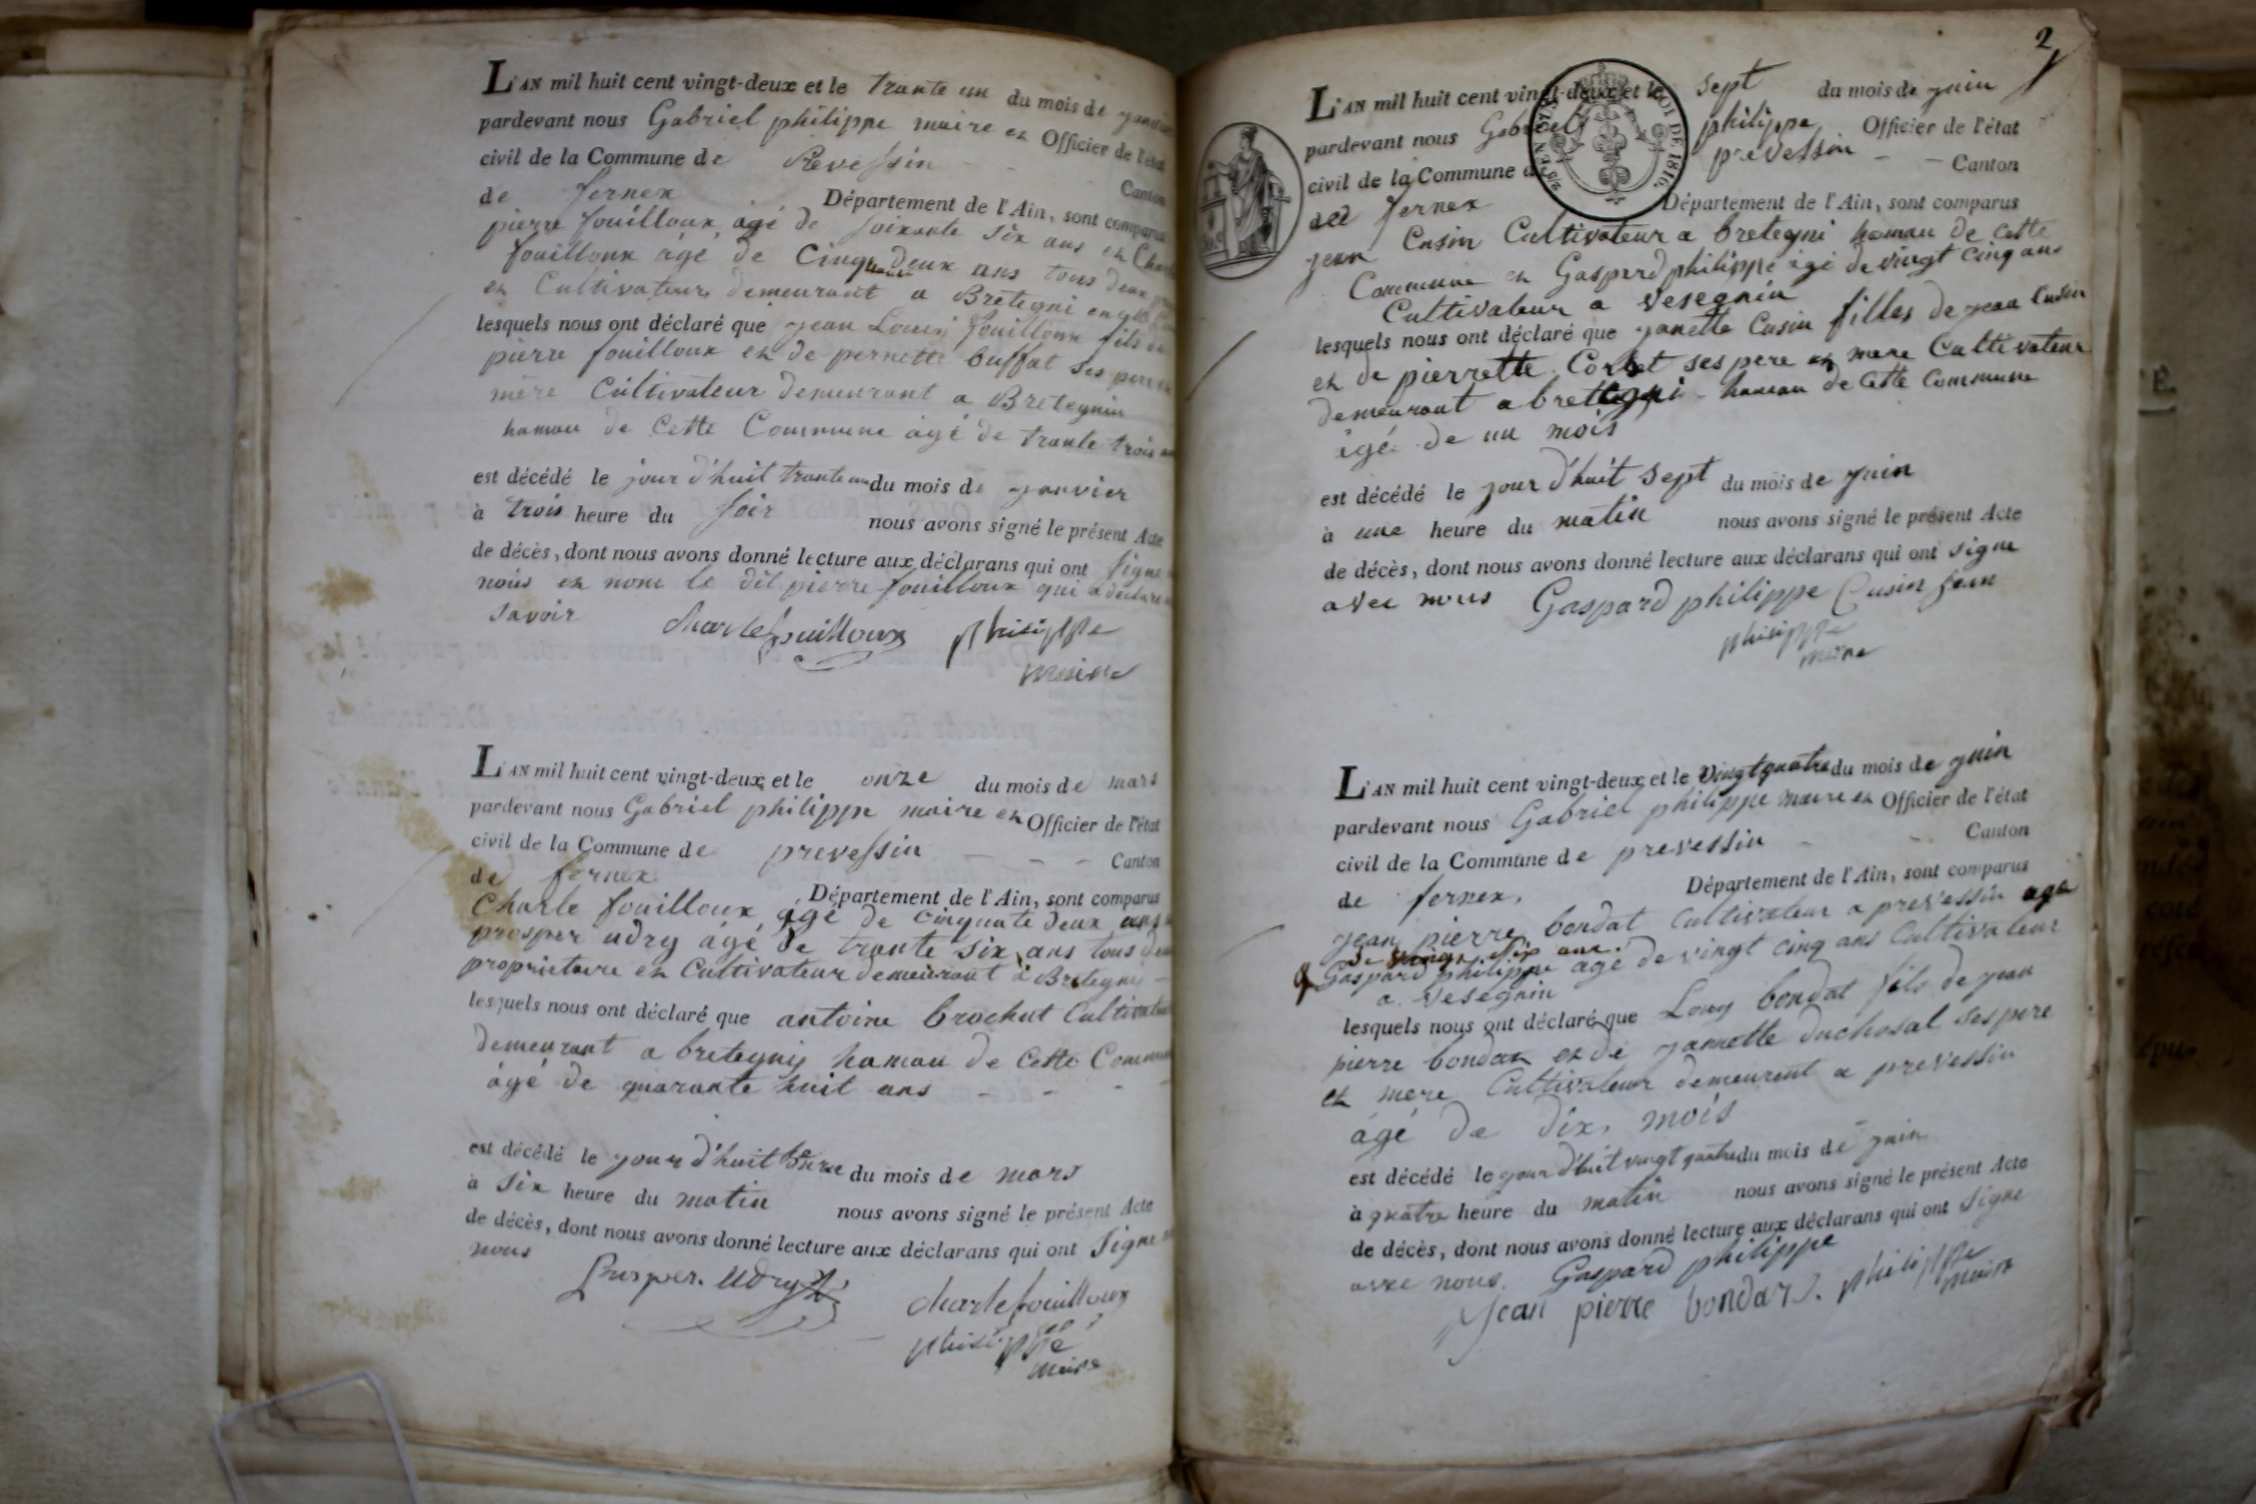 L'AN mil huit cent vingt-deux et le trante un du mois de
pardevant nous Gabriel philippe maire et Officier de l'état
civil de la Commune de Prevessin Canton
de fernex Département de l'Ain, sont comparus
pierre fouilloux âgé de soixante six ans et
fouilloux âgé de Cinquante deux ans tous deux
et Cultivateur demeurant a Bretegni
lesquels nous ont déclaré que jean Louis fouilloux fils de
pierre fouilloux et de pernette buffat ses pere et
mère Cultivateur demeurant a Bretegnin
hamau de Cette Commune âgé de trante trois
est décédé le jour d'huit trante un du mois de janvier
à trois heure du soir nous avons signé le présent Acte
de décès, dont nous avons donné lecture aux déclarans qui ont signe
nous et nom le dit pierre fouilloux qui a declaré
savoir
charle fouilloux philippe
maire
L'AN mil huit cent vingt-deux et le onze du mois de mars
pardevant nous Gabriel philippe maire et Officier de l'état
civil de la Commune de prevessin — — — Canton
de fernex Département de l'Ain, sont comparus
Charle fouilloux âgé de cinquante deux ans
prosper udry âgé de trante six ans tous
proprietaire et Cultivateur demeurant a Bretegny
lesquels nous ont déclaré que antoine brochut
demeurant a bretegny hamau de Cette
âgé de quarante huit ans — —
est décédé le jour d'huit onze du mois de mars
à six heure du matin nous avons signé le présent Acte
de décès, dont nous avons donné lecture aux déclarans qui ont signe
nous
Prosper. Udry
charle fouilloux
philippe
maire
2
L'AN mil huit cent vingt-deux et le sept du mois de juin
pardevant nous Gabriel philippe Officier de l'état
civil de la Commune de prevessin — — Canton
de fernex Département de l'Ain, sont comparus
ROI DE 1816.
jean Cusin Cultivateur a bretegni hamau de Cette
Commune et Gasperd philippe âgé de vingt cinq ans
Cultivateur a Vesegnin
lesquels nous ont déclaré que janette Cusin filles de jean Cusin
et de pierrette Corbet ses pere et mere Cultivateur
demeurant a bretegni - hamau de Cette Commune
âgé de un mois
est décédé le jour d'huit sept du mois de juin
à une heure du matin nous avons signé le présent Acte
de décès, dont nous avons donné lecture aux déclarans qui ont signe
avec nous Gaspard philippe Cusin jean
philippe
maire
L'AN mil huit cent vingt-deux et le vingt quatre du mois de juin
pardevant nous Gabriel philippe maire et Officier de l'état
civil de la Commune de prevessin Canton
de fernex, Département de l'Ain, sont comparus
jean pierre bondat Cultivateur a prevessin age
de six ans.
Gaspard philippe age de vingt cinq ans Cultivateur
a Vesegnin
lesquels nous ont déclaré que Louy bondat fils de jean
pierre bondat et de janette duchosal ses pere
et mere Cultivateur demeurent a prevessin
âgé de dix, mois
est décédé le jour d'huit vingt quatre du mois de juin
à quatre heure du matin nous avons signé le présent Acte
de décès, dont nous avons donné lecture aux déclarans qui ont signe
avec nous. Gaspard philippe
jean pierre bondat. philippe
maire